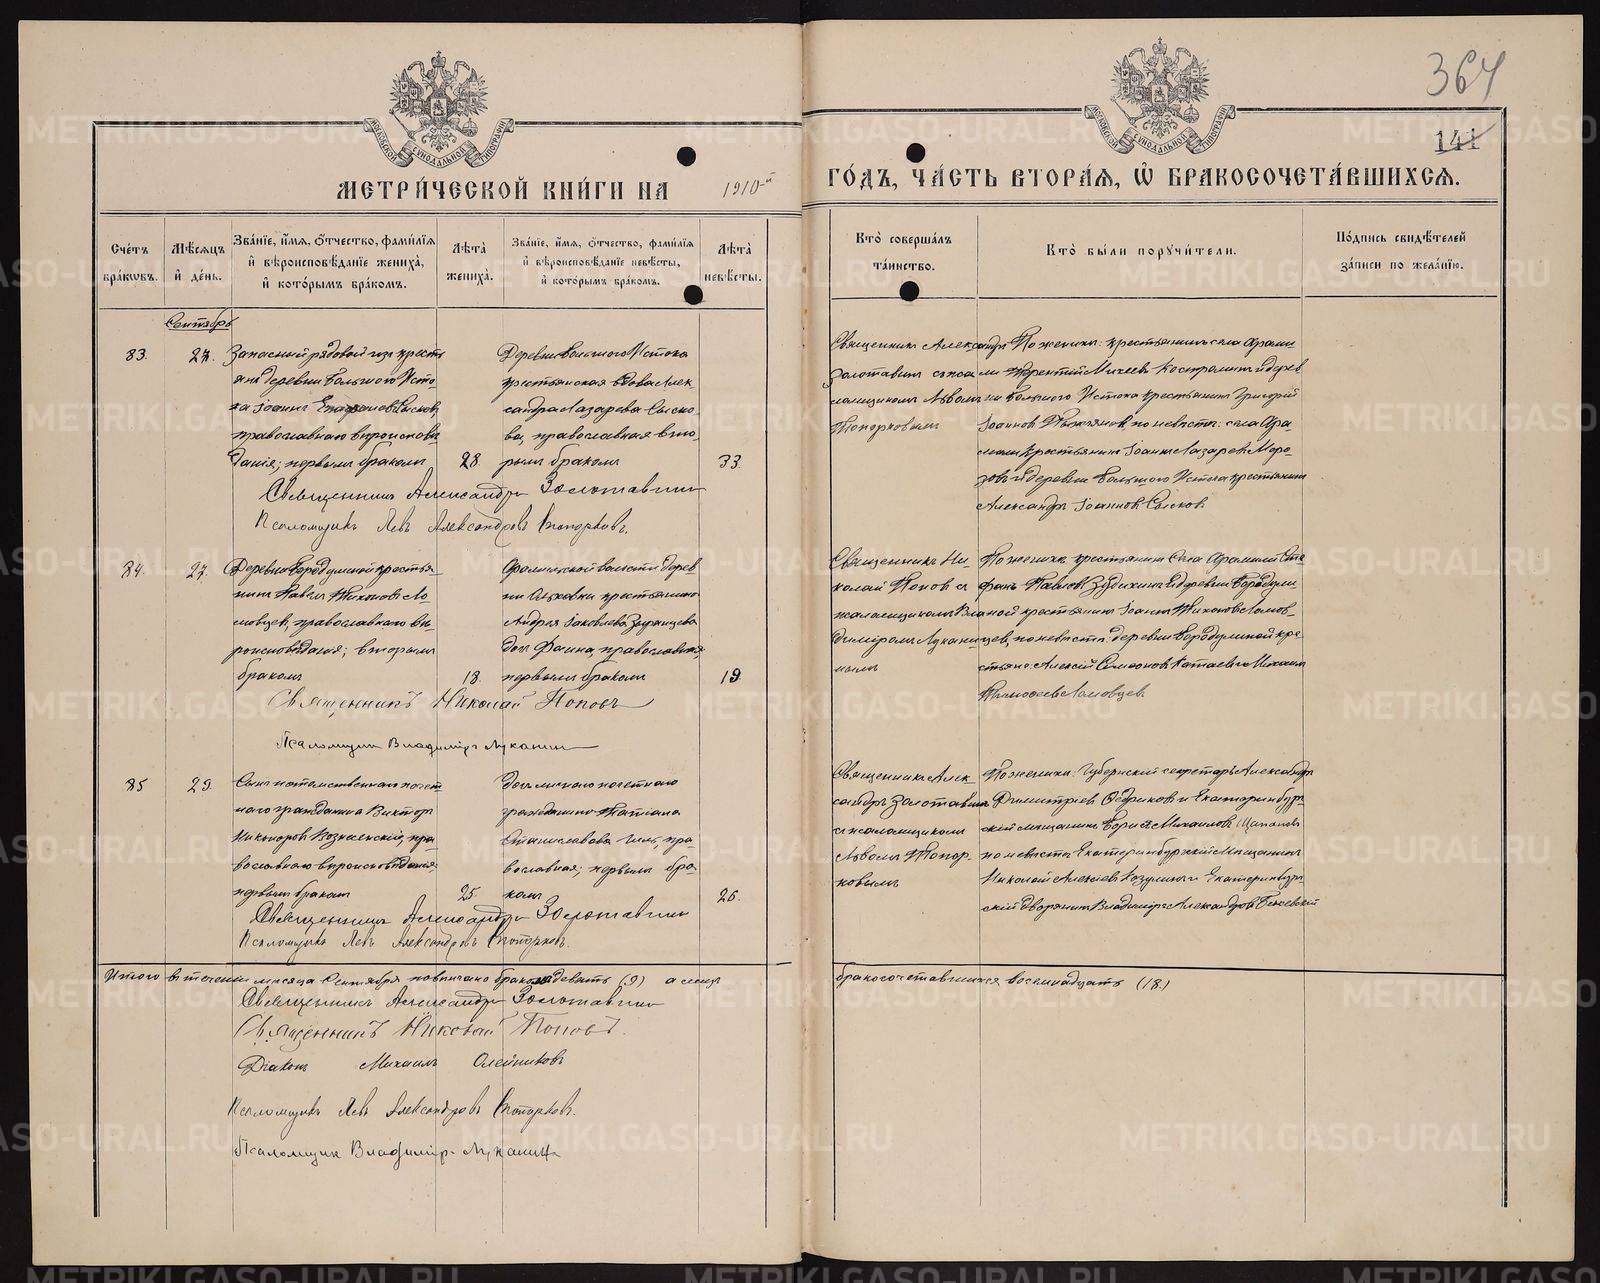 364
141
МОСКОВСКОЙ СѴНОДАЛЬНОЙ ТИПОГРАФІИ
МОСКОВСКОЙ СѴНОДАЛЬНОЙ ТИПОГРАФІИ
МЕТРИ́ЧЕСКОЙ КНИ́ГИ НА 1910-й ГО́ДЪ, ЧА́СТЬ ВТОРА́Я, Ѡ҆ БРАКОСОЧЕТА́ВШИХСЯ.
Сче́тъ бра́кѡвъ.
Мѣ́сяцъ и҆ де́нь.
Зва́нїе, и҆́мя, ѻ҆́тчество, фами́лїя и҆ вѣроисповѣ́данїе жениха̀, и҆ кото́рымъ бра́комъ.
Лѣ́та жениха̀.
Зва́нїе, и҆́мя, ѻ҆́тчество, фами́лїя и҆ вѣроисповѣ́данїе невѣ́сты, и҆ кото́рымъ бра́комъ.
Лѣ́та невѣ́сты.
Кто̀ соверша́лъ та́инство.
Кто̀ бы́ли поручи́тели.
По́дпись свидѣ́телей за́писи по жела́нїю.
Сентябрь
83.
27.
Запасный рядовой изъ кресть
янъ деревни Большого Исто
ка Іоаннъ Сысковъ
православнаго вѣроисповѣ
данія; первымъ бракомъ
28.
Деревни Большого Истока
крестьянская вдова Алек
сандра Лазарева Сыско-
ва, православная вто-
рымъ бракомъ
33.
Священникъ Александръ
Золотавинъ съ псало
мщикомъ Львомъ
Топорковымъ
По женихѣ: крестьянинъ села Арами
ли Терентій Михеевъ Костромин и дерев
ни Большого Истока крестьянинъ Григорій
Іоанновъ по невѣстѣ: села Ара-
мили крестьянинъ Іоаннъ Лазаревъ Моро-
зовъ и деревни Большого Истока крестьянинъ
Александръ Іоанновъ Сысковъ
Священникъ Александръ Золотавинъ
Псаломщикъ Левъ Александровъ Топорковъ.
84.
27.
Деревни Бородулиной крестья-
нинъ Павелъ Тихоновъ Ло-
мовцевъ, православнаго вѣ-
роисповѣданія; вторымъ
бракомъ
18.
Арамильской волости дерев
ни Ольховки крестьянина
Андрея Іаковлева
дочь Фаина, православная,
первымъ бракомъ
19.
Священникъ Ни-
колай Поповъ съ
псаломщикомъ Вла
диміромъ Лукани-
нымъ
По женихѣ крестьянинъ Села Арамили Сте
фанъ Павловъ Зудихинъ и деревни Бородули
ной крестьянинъ Іоаннъ Тихоновъ Ломов
цевъ, по невѣстѣ: деревни Бородулиной кре
стьяне: Алексій Симеоновъ Катаевъ и Михаилъ
Тимофеевъ Ломовцевъ.
Священникъ Николай Поповъ
Псаломщикъ Владиміръ Луканинъ
85
29.
Сынъ потомственнаго почет
наго гражданина Викторъ
Никаноровъ Вознесенскій, пра
вославнаго вѣроисповѣданія;
первымъ бракомъ
25
Дочь личнаго почетнаго
гражданина Татіана
Станиславова, пра-
вославная; первымъ бра-
комъ
26.
Священникъ Алек-
сандръ Золотавинъ
съ псаломщикомъ
Львомъ Топор-
ковымъ
По женихѣ: Губернскій секретарь Александръ
Димитріевъ Ѳедриковъ и Екатеринбург-
скій мѣщанинъ Борисъ Михаиловъ
по невѣстѣ: Екатеринбургскій Мѣщанинъ
Николай Алексѣевъ Козулинъ и Екатеринбург-
скій Дворянинъ Владиміръ Александровъ
Священникъ Александръ Золотавинъ
Псаломщикъ Левъ Александровъ Топорковъ.
Итого въ теченіи мѣсяца Сентября повѣнчано браковъ девять (9) а лицъ бракосочетавшихся восемнадцать (18.)
Священникъ Александръ Золотавинъ
Священникъ Николай Поповъ.
Діаконъ Михаилъ Олейниковъ
Псаломщикъ Левъ Александровъ Топорковъ.
Псаломщикъ Владиміръ Луканинъ
METRIKI.GASO-URAL.RU